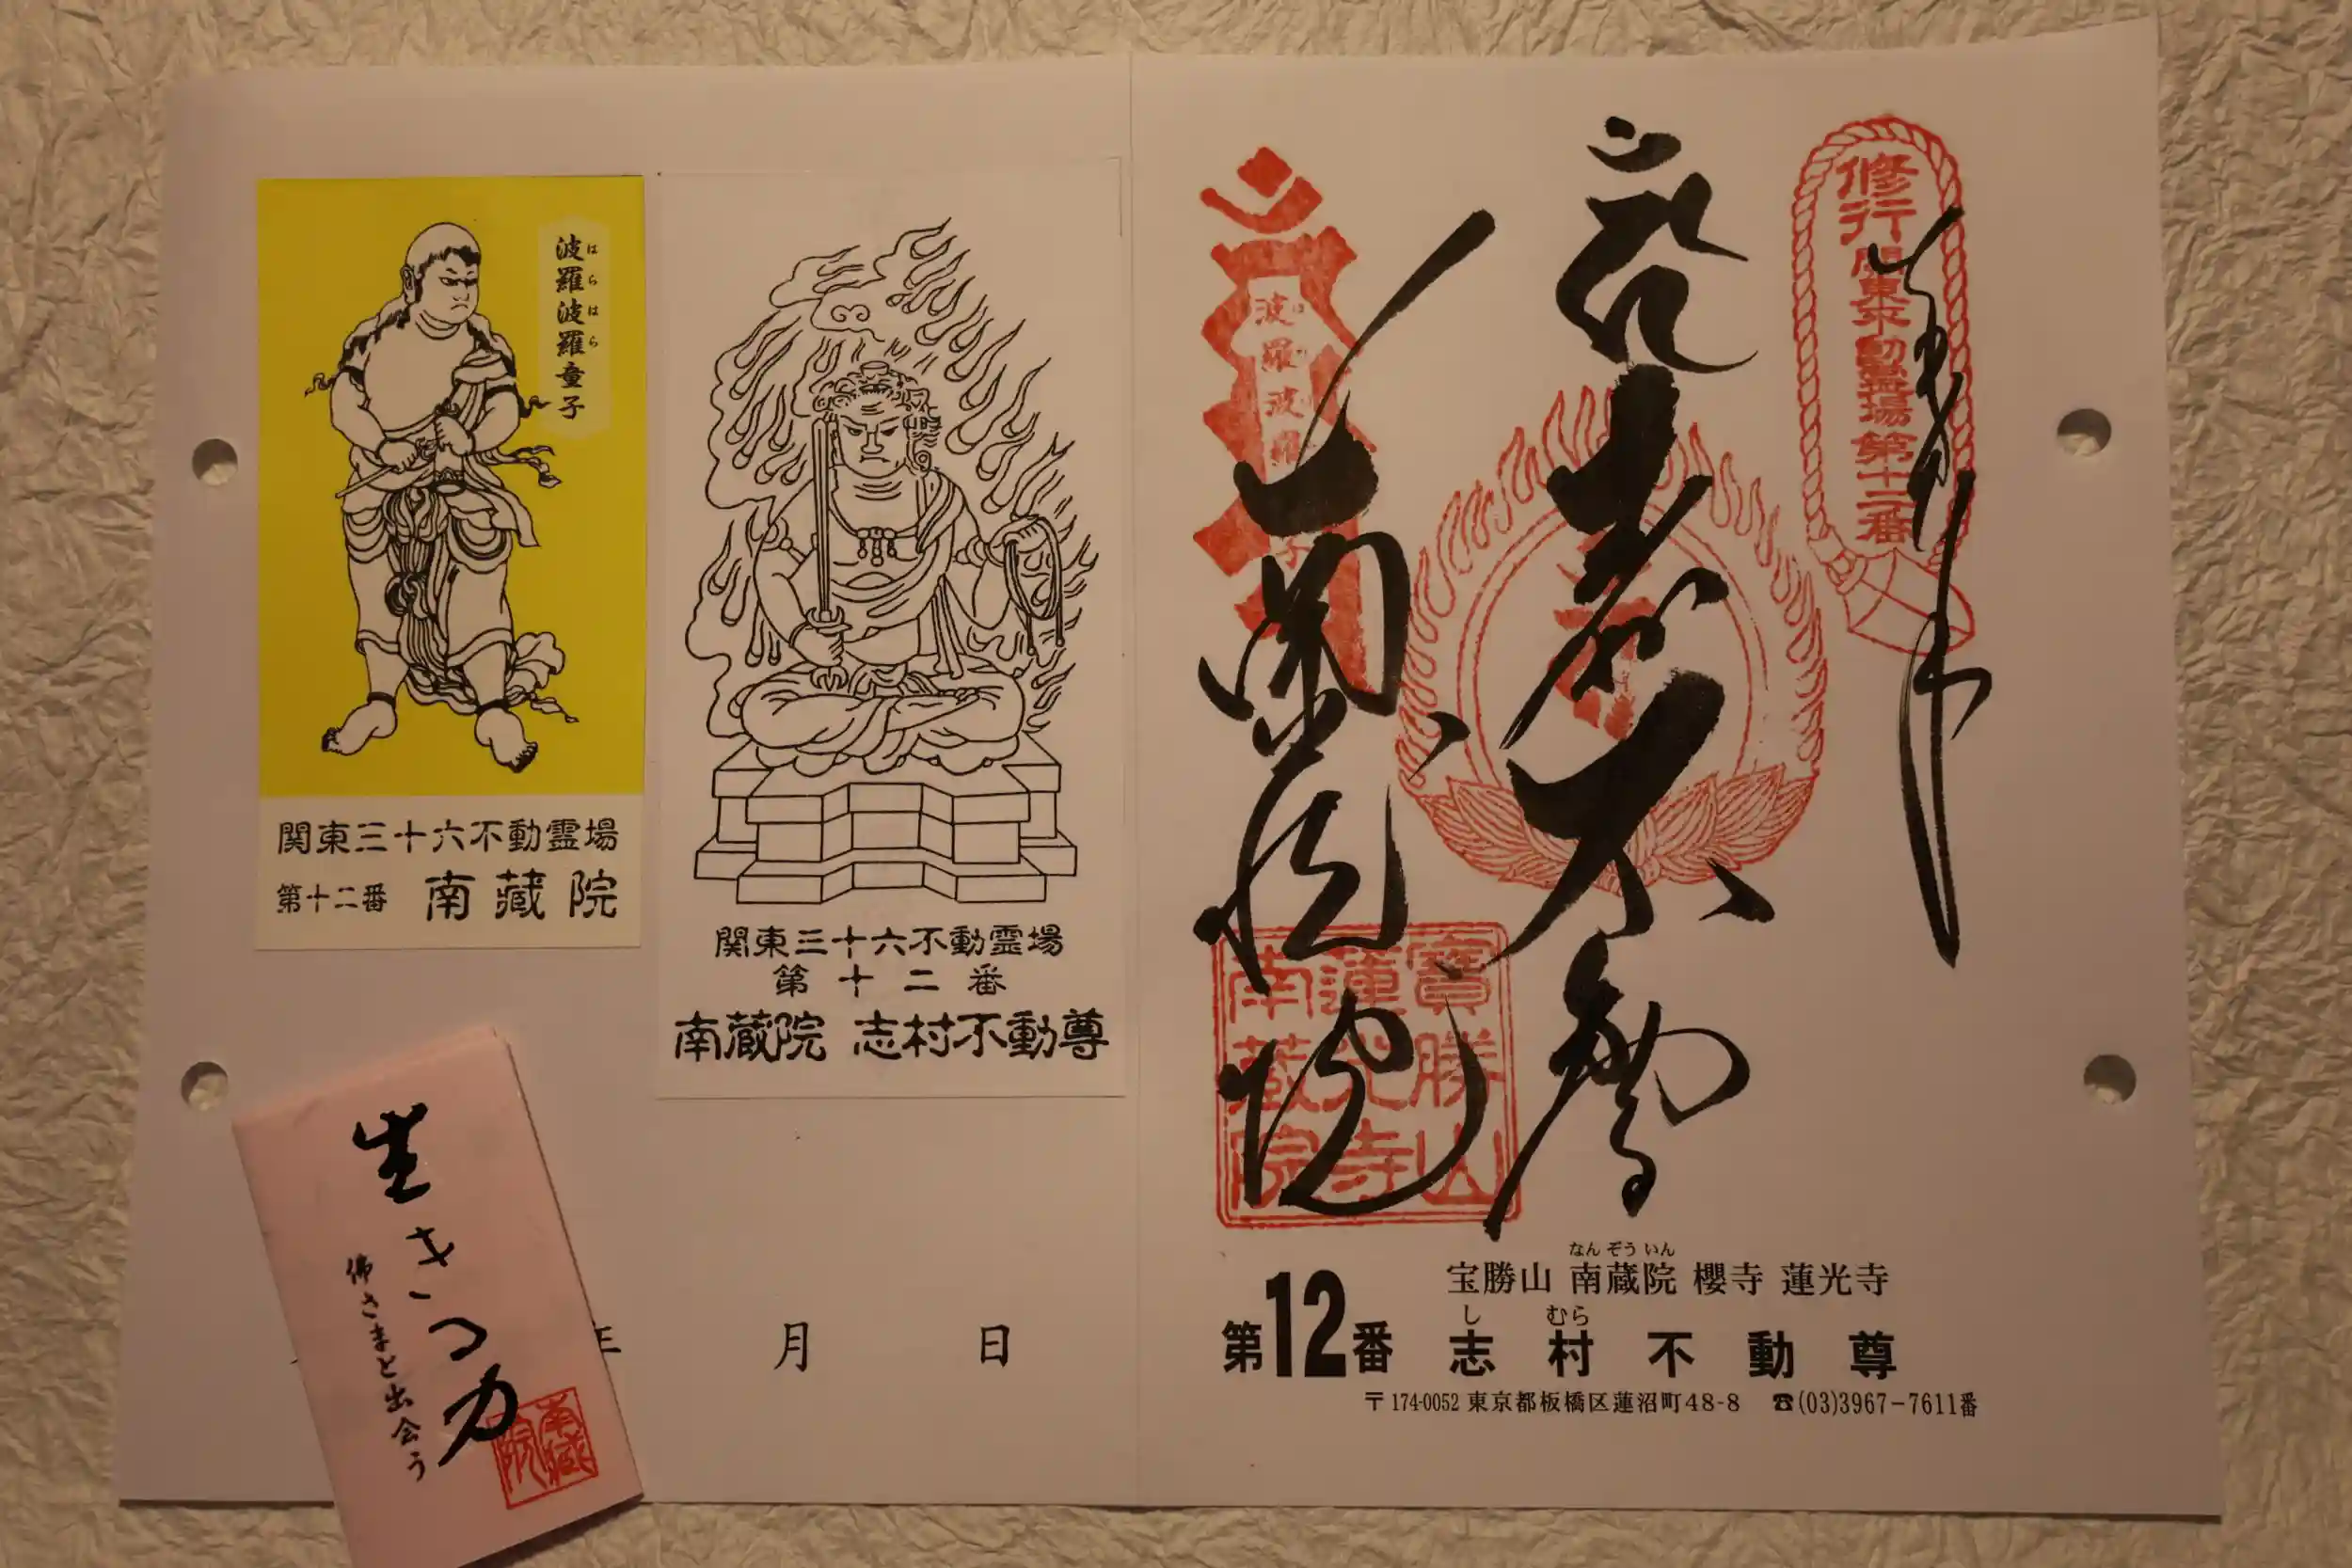 波羅波羅童子
はらはら
関東三十六不動霊場
第十二番 南藏院
関東三十六不動霊場
第十二番
南蔵院 志村不動尊
生きる力
佛さまと出会う
南蔵院
年 月 日
修行関東不動霊場第十二番
奉拝
志村不動尊
南蔵院
波羅波羅
寶勝山
蓮光寺
南蔵院
なんぞういん
宝勝山 南蔵院 櫻寺 蓮光寺
しむら
第12番 志村不動尊
〒174-0052 東京都板橋区蓮沼町48-8 ☎(03)3967-7611番